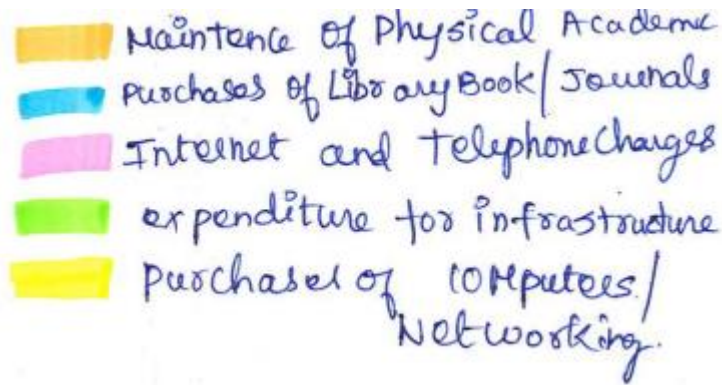 Maintence of Physical Academic
Purchases of Library Book/Journals
Internet and Telephone Charges
expenditure for infrastructure
purchases of Computers/
Networking.